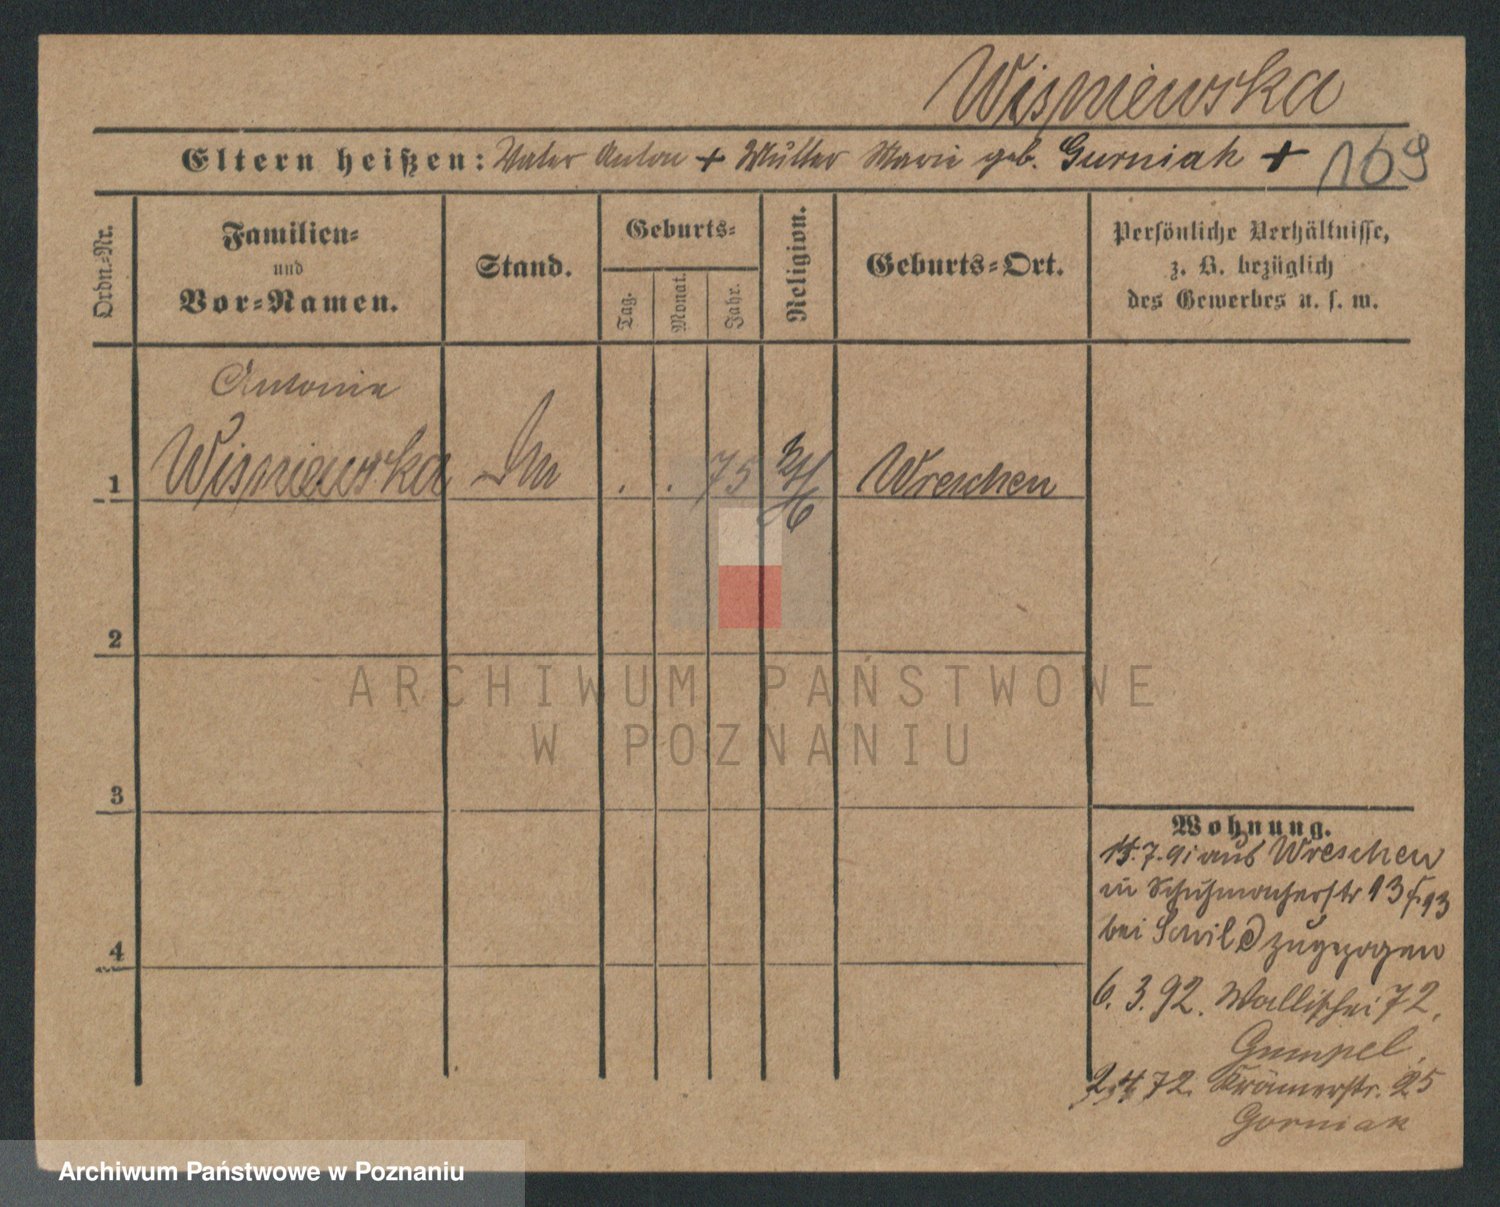 Wiśniewska
Eltern heißen: Vater Anton + Mutter Marie geb. Gurniak +
169
Ordn.-Nr.
Familien-
und
Vor-Namen.
Stand.
Geburts-
Tag.
Monat.
Jahr.
Religion.
Geburts-Ort.
Persönliche Verhältnisse,
z. B. bezüglich
des Gewerbes u. s. w.
Antonie
1 Wiśniewska . . 75 Wreschen
2
3
4
Wohnung.
15.7.91 aus Wreschen
in Schuhmacherstr 13
bei zugezogen
6.3.92. Wallischei 72,
Gumpel,
Krämerstr. 25
Gorniak
ARCHIWUM PAŃSTWOWE
W POZNANIU
Archiwum Państwowe w Poznaniu